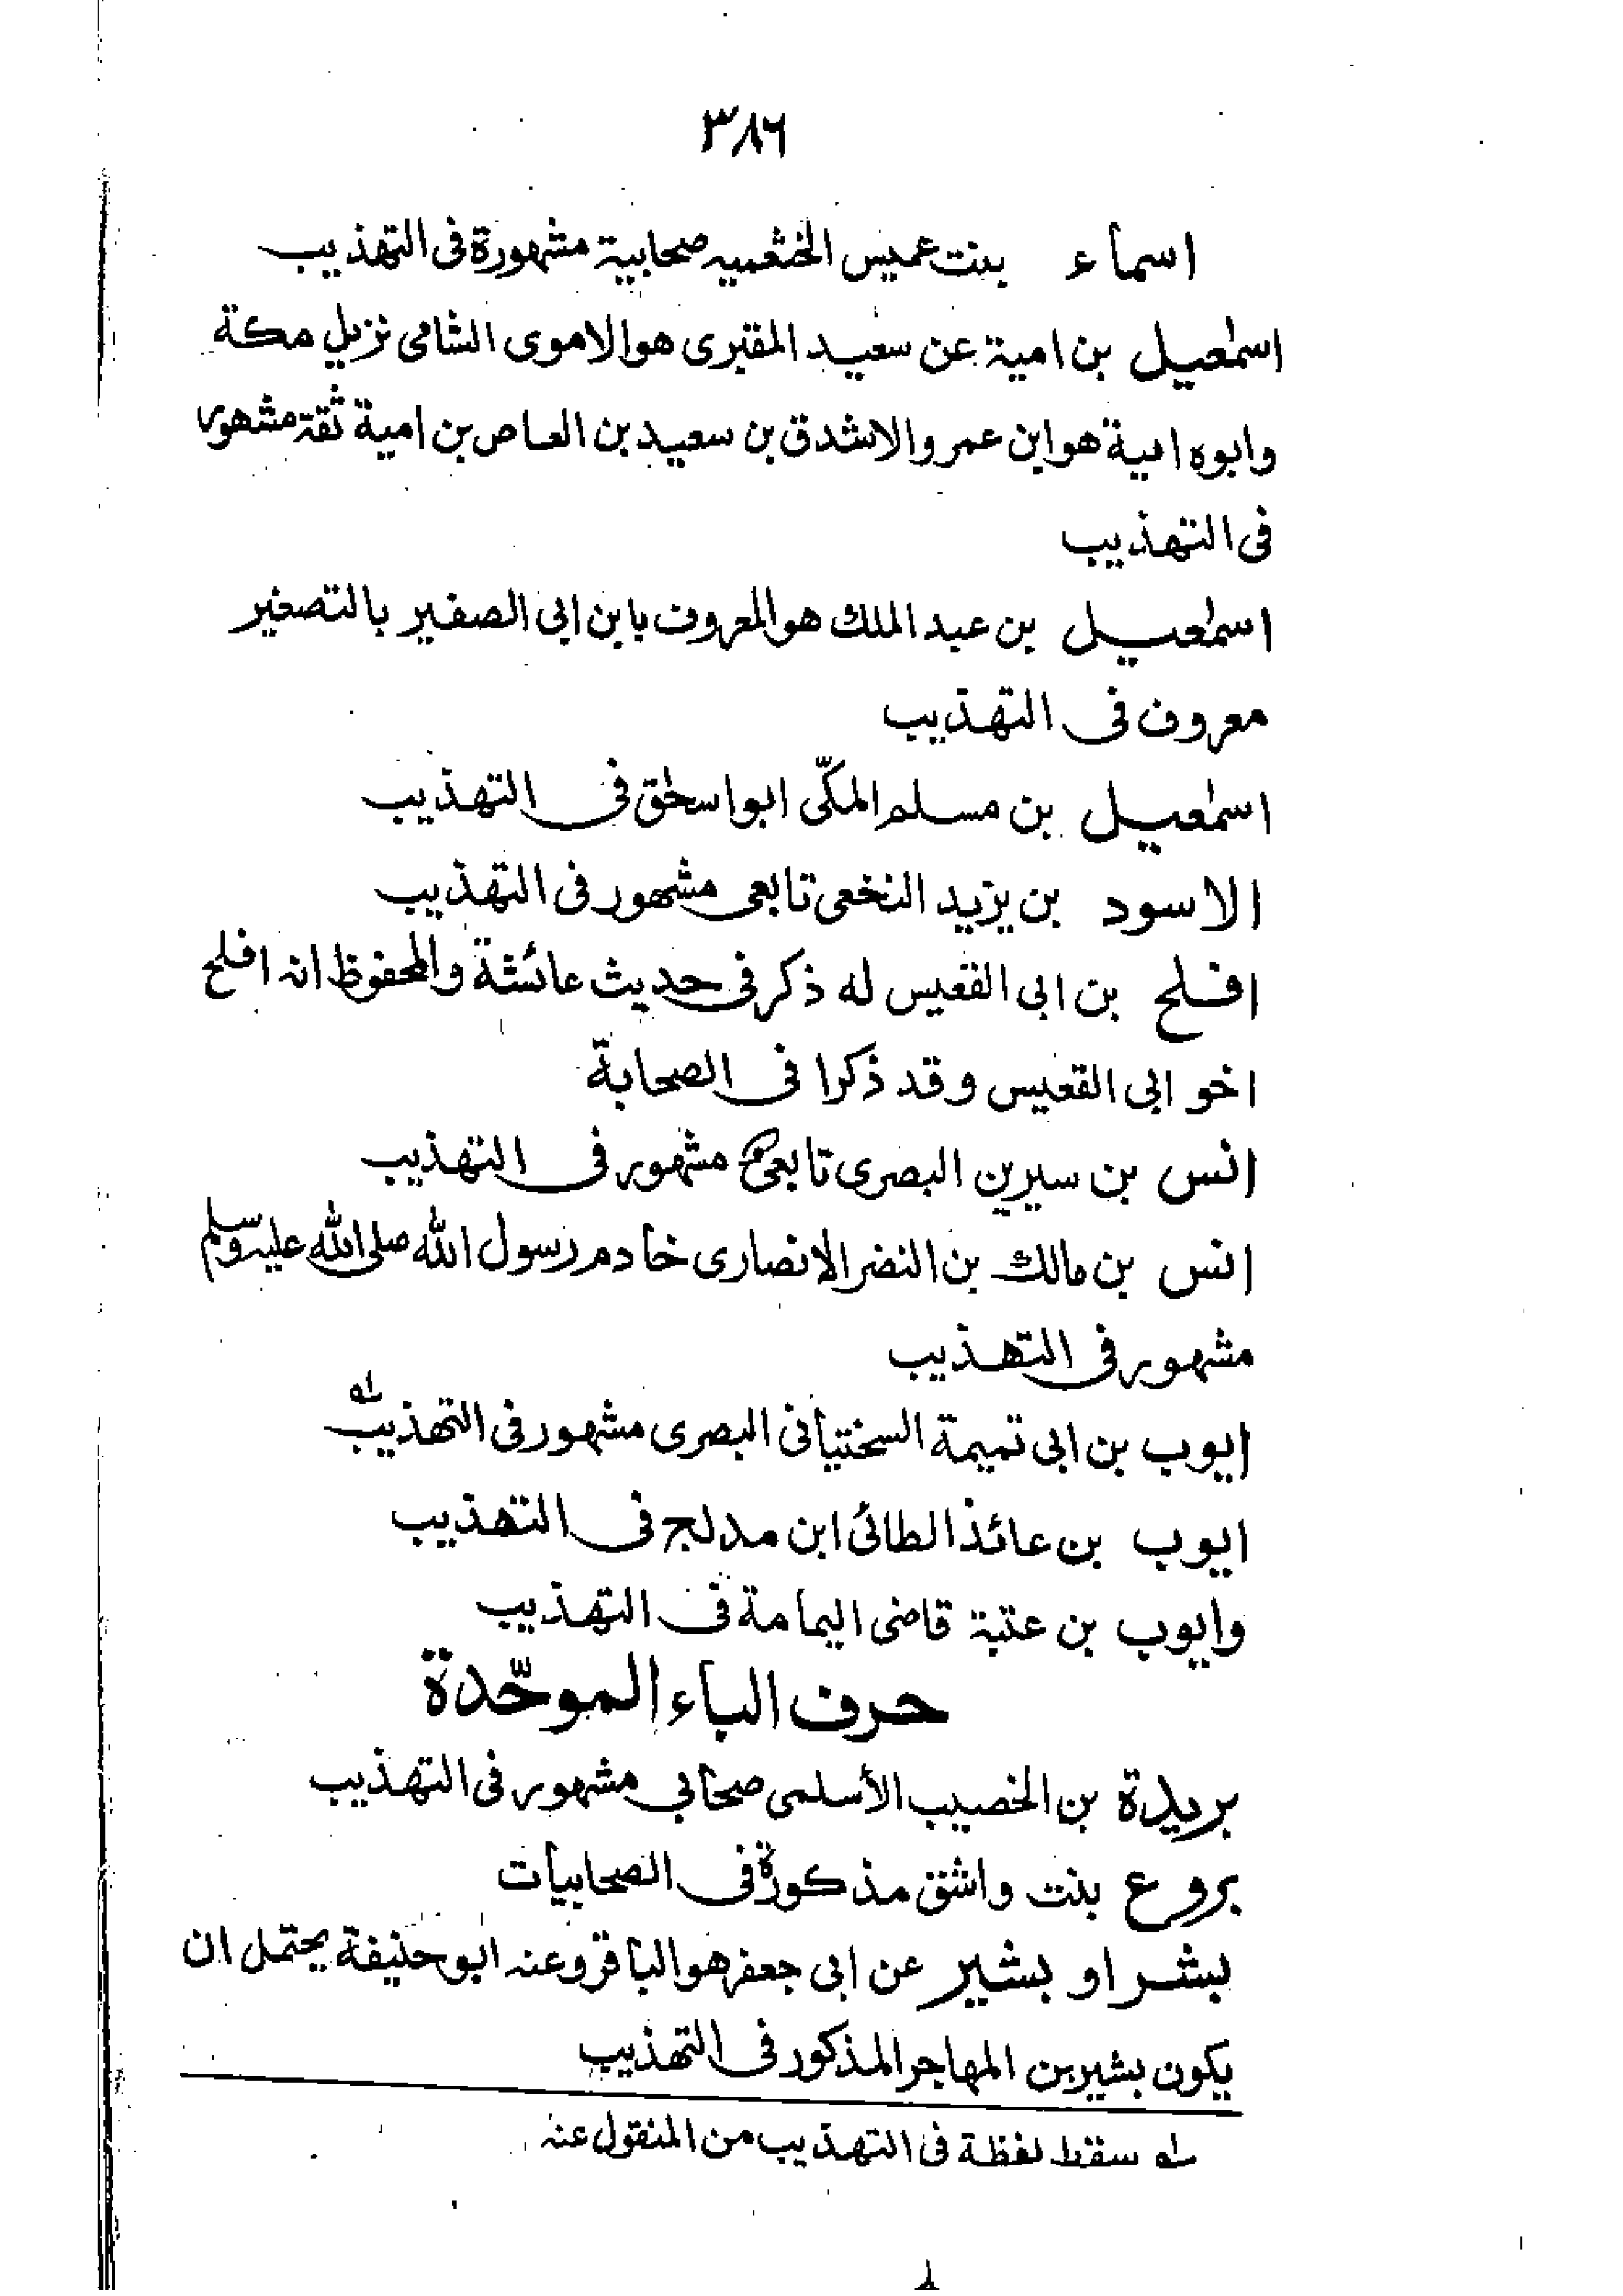 ٣٨٦
اسماء بنت عميس الخثعميه صحابية مشهورة فى التهذيب
اسمٰعيل بن امية عن سعيد المقبرى هوالاموى الشامى نزيل مكة
وابوه امية هوابن عمر والاشدق بن سعيد بن العاص بن امية ثقة مشهور
فى التهذيب
اسمٰعيل بن عبدالملك هوالمعروف بابن ابى الصفير بالتصغير
معروف فى التهذيب
اسمٰعيل بن مسلم المكّى ابواسحٰق فى التهذيب
الاسود بن يزيد النخعى تابعى مشهور فى التهذيب
افلح بن ابى القعيس له ذكر فى حديث عائشة والمحفوظ انه افلح
اخو ابى القعيس وقد ذكرا فى الصحابة
انس بن سيرين البصرى تابعى مشهور فى التهذيب
انس بن مالك بن النضر الانصارى خادم رسول الله صلى الله عليه وسلم
مشهور فى التهذيب
ايوب بن ابى تميمة السختيانى البصرى مشهور فى التهذيب له
ايوب بن عائذ الطائى ابن مدلج فى التهذيب
وايوب بن عتبة قاضى اليمامة فى التهذيب
حرف الباء الموحّدة
بريدة بن الخصيب الأسلمى صحابي مشهور فى التهذيب
بروع بنت واشق مذكورة فى الصحابيات
بشر او بشير عن ابى جعفر هوالباقر وعنه ابو حنيفة يحتمل ان
يكون بشير بن المهاجر المذكور فى التهذيب
له سقط لفظة فى التهذيب من المنقول عنه